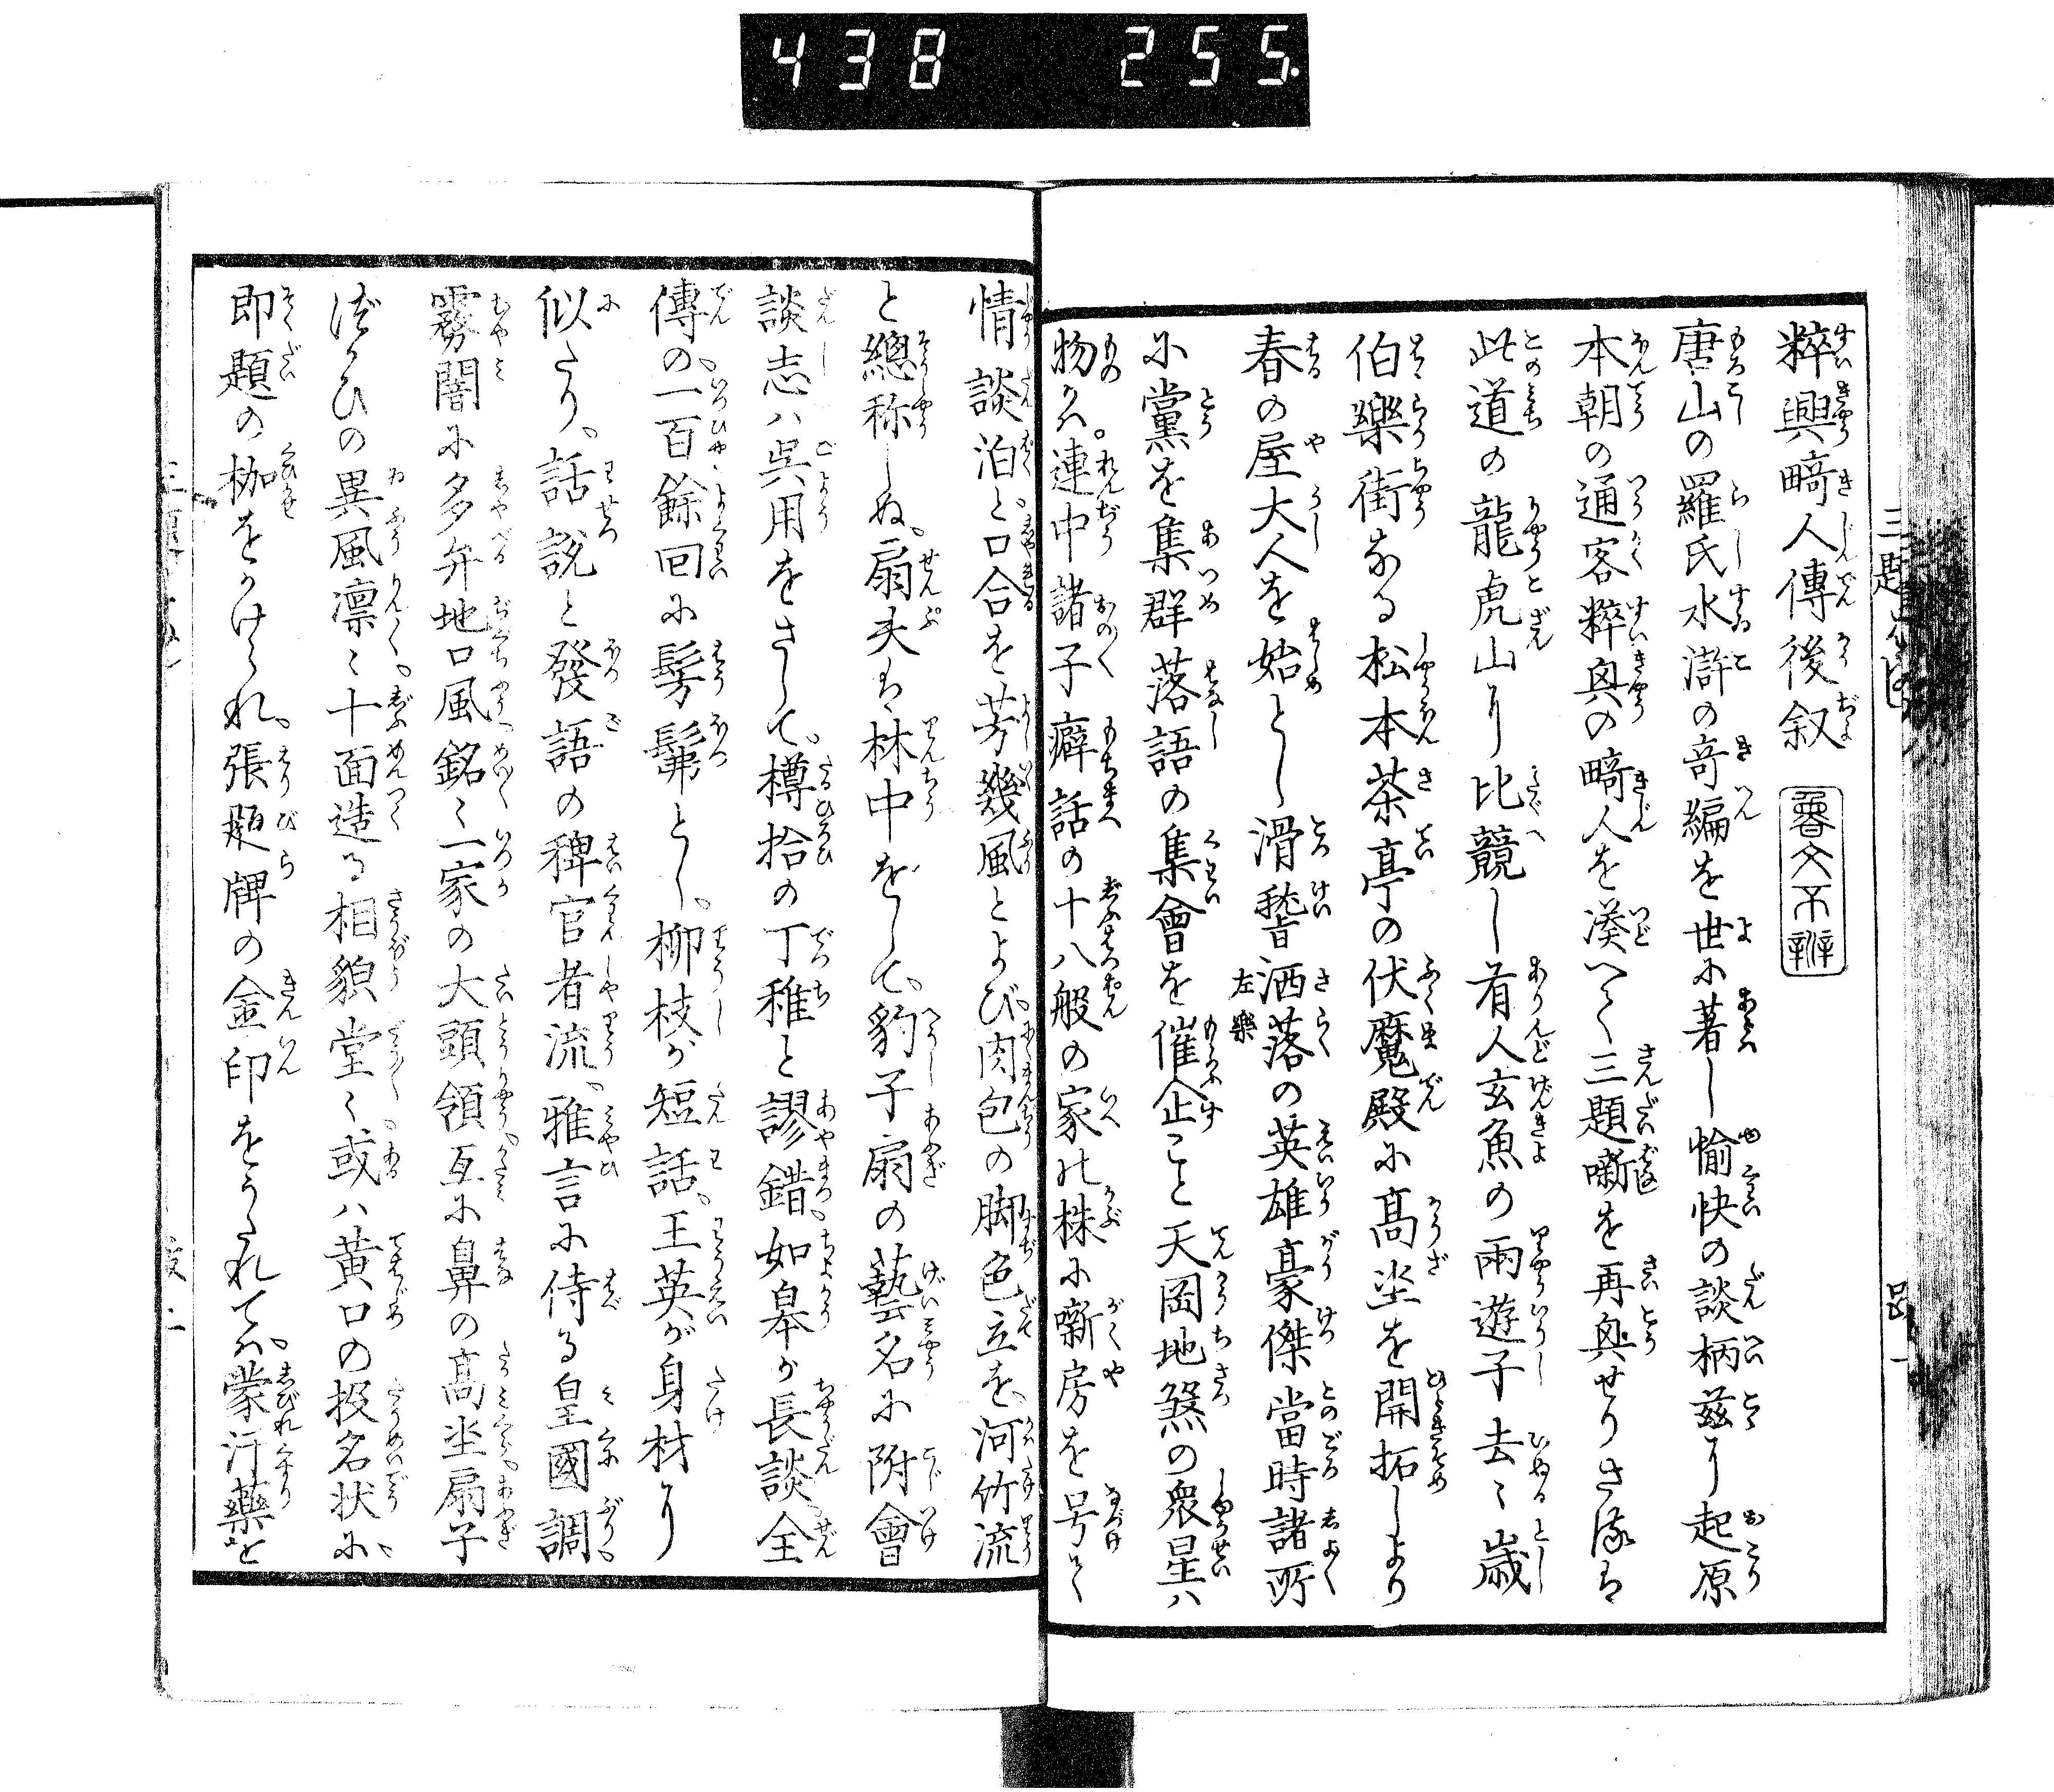 438 255.
粹興畸人傳後叙
唐山の羅氏水滸の竒編を世に著し愉快の談柄茲に起原
本朝の通客粹興の畸人を湊へて三題噺を再興せりさるは
此道の龍虎山に比競し有人玄魚の兩遊子去〻歳
伯樂街なる松本茶亭の伏魔殿に髙坐を開拓しより
春の屋大人を始とし滑稽洒落の英雄豪傑當時諸所
左樂
に黨を集群落語の集會を催止こと天罡地煞の衆星ハ
物かハ。連中諸子癖話の十八般の家の株に噺房を号て
情談泊と口合を芳幾風とよび肉包の脚色立を、河竹流
と總称しぬ。扇夫は林中をして、豹子扇の藝名に附會
談志ハ呉用をさして、樽拾の丁稚と謬錯、如皋が長談全
傳の、一百餘回に髣髴とし、柳枝が短話、王英が身材に
似たり、話説と發語の稗官者流、雅言に侍る皇國調、
霧闇に多弁地口風、銘〻一家の大頭領、互に鼻の髙坐扇子
づかひの異風凛〻。十面造る相貌堂〻、或ハ黄口の投名状に、
即題の枷をかけられ、張題牌の金印をうたれてハ、蒙汗藥を